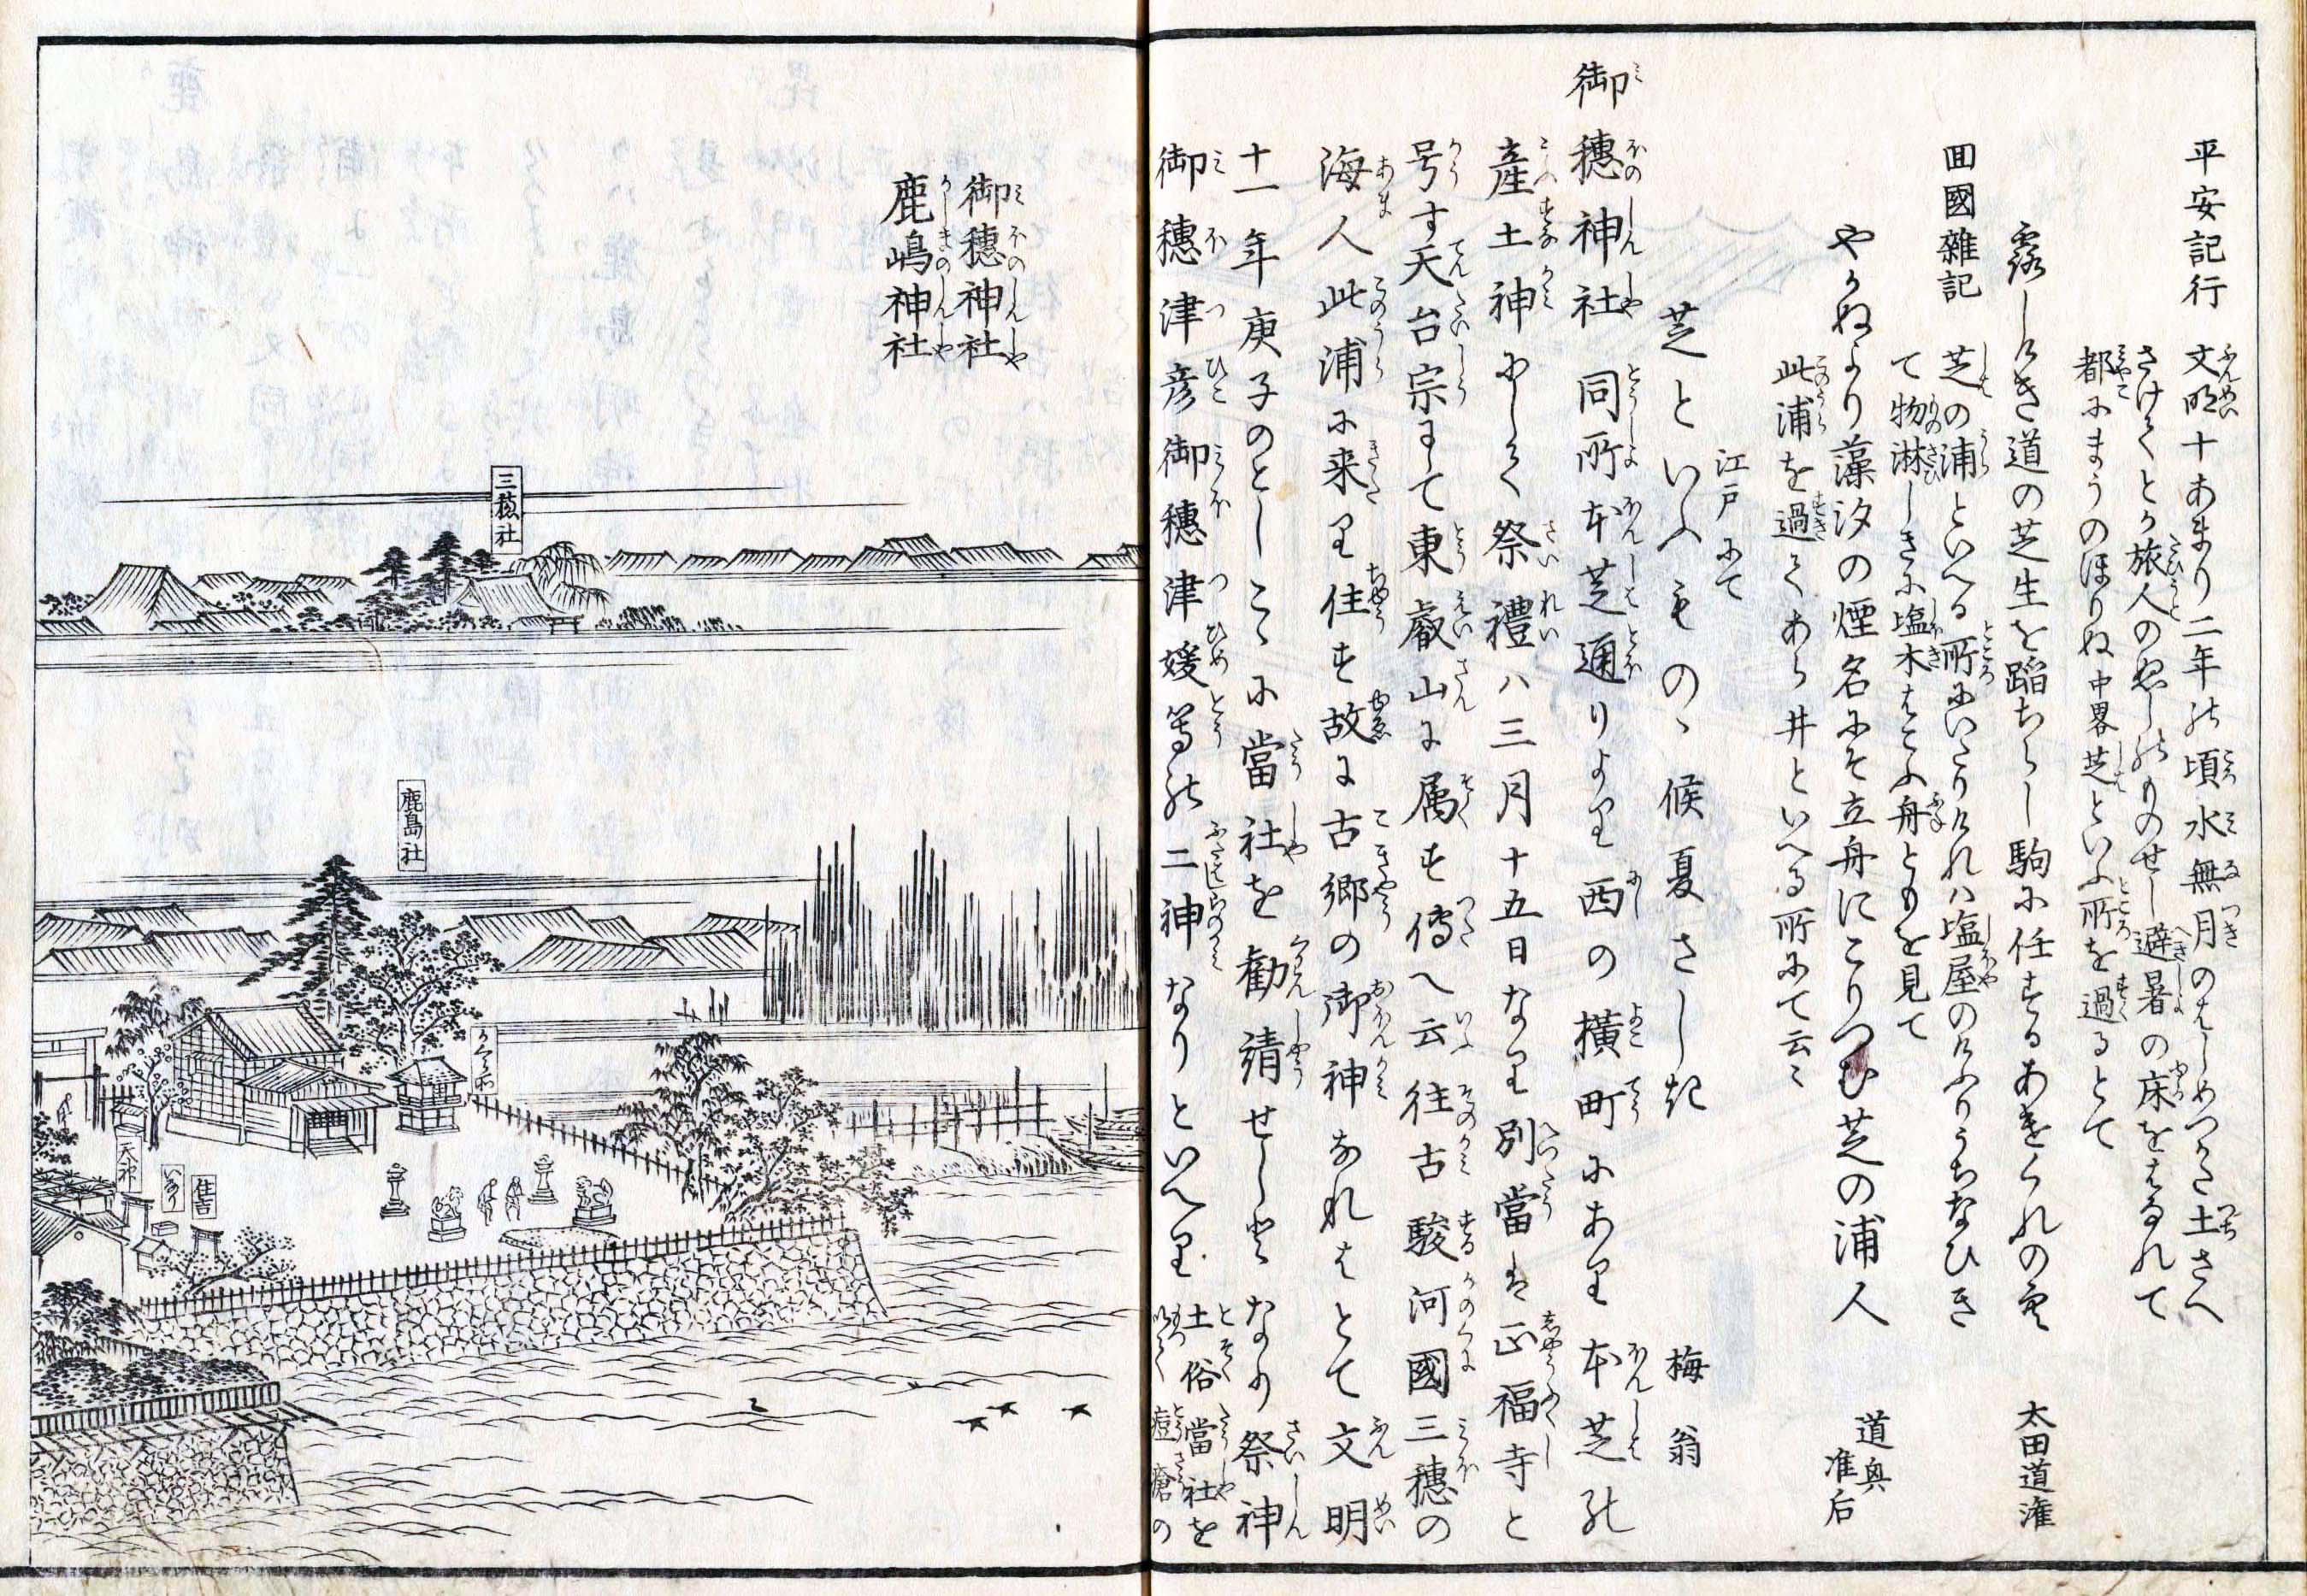 平安記行 文明十あまり二年の頃水無月のはしめつかた土さへ
さけてとか旅人の
都にまうのほりぬ中畧芝といふ所を過るとて
露しけき道の芝生を踏ちらし駒に任するあけくれの空 太田道潅
回國雜記 芝の浦といへる所にいたりけれハ塩屋のけふりうちなひき
て物淋しきに塩木はこふ舟ともを見て
やかぬより藻汐の煙名にそ立舟にこりつむ芝の浦人 道奥准后
此浦を過てあら井といへる所にて云々
江戸にて
芝といふものゝ候夏さし記 梅翁
御穗神社 同所本芝通りより西の横町にあり本芝の
産土神にして祭禮ハ三月十五日なり別當は正福寺と
号す天台宗にて東叡山に属す傳へ云往古駿河國三穗の
海人此浦に来り住す故に古郷の御神なれはとて文明
十一年庚子のとしこゝに當社を勧請せしとなり祭神
御穗津彦御穗津媛等の二神なりといへり 土俗當社を
以て痘瘡の
御穗神社
鹿嶋神社
三穂社
鹿島社
かくら所
天神
いなり
住吉